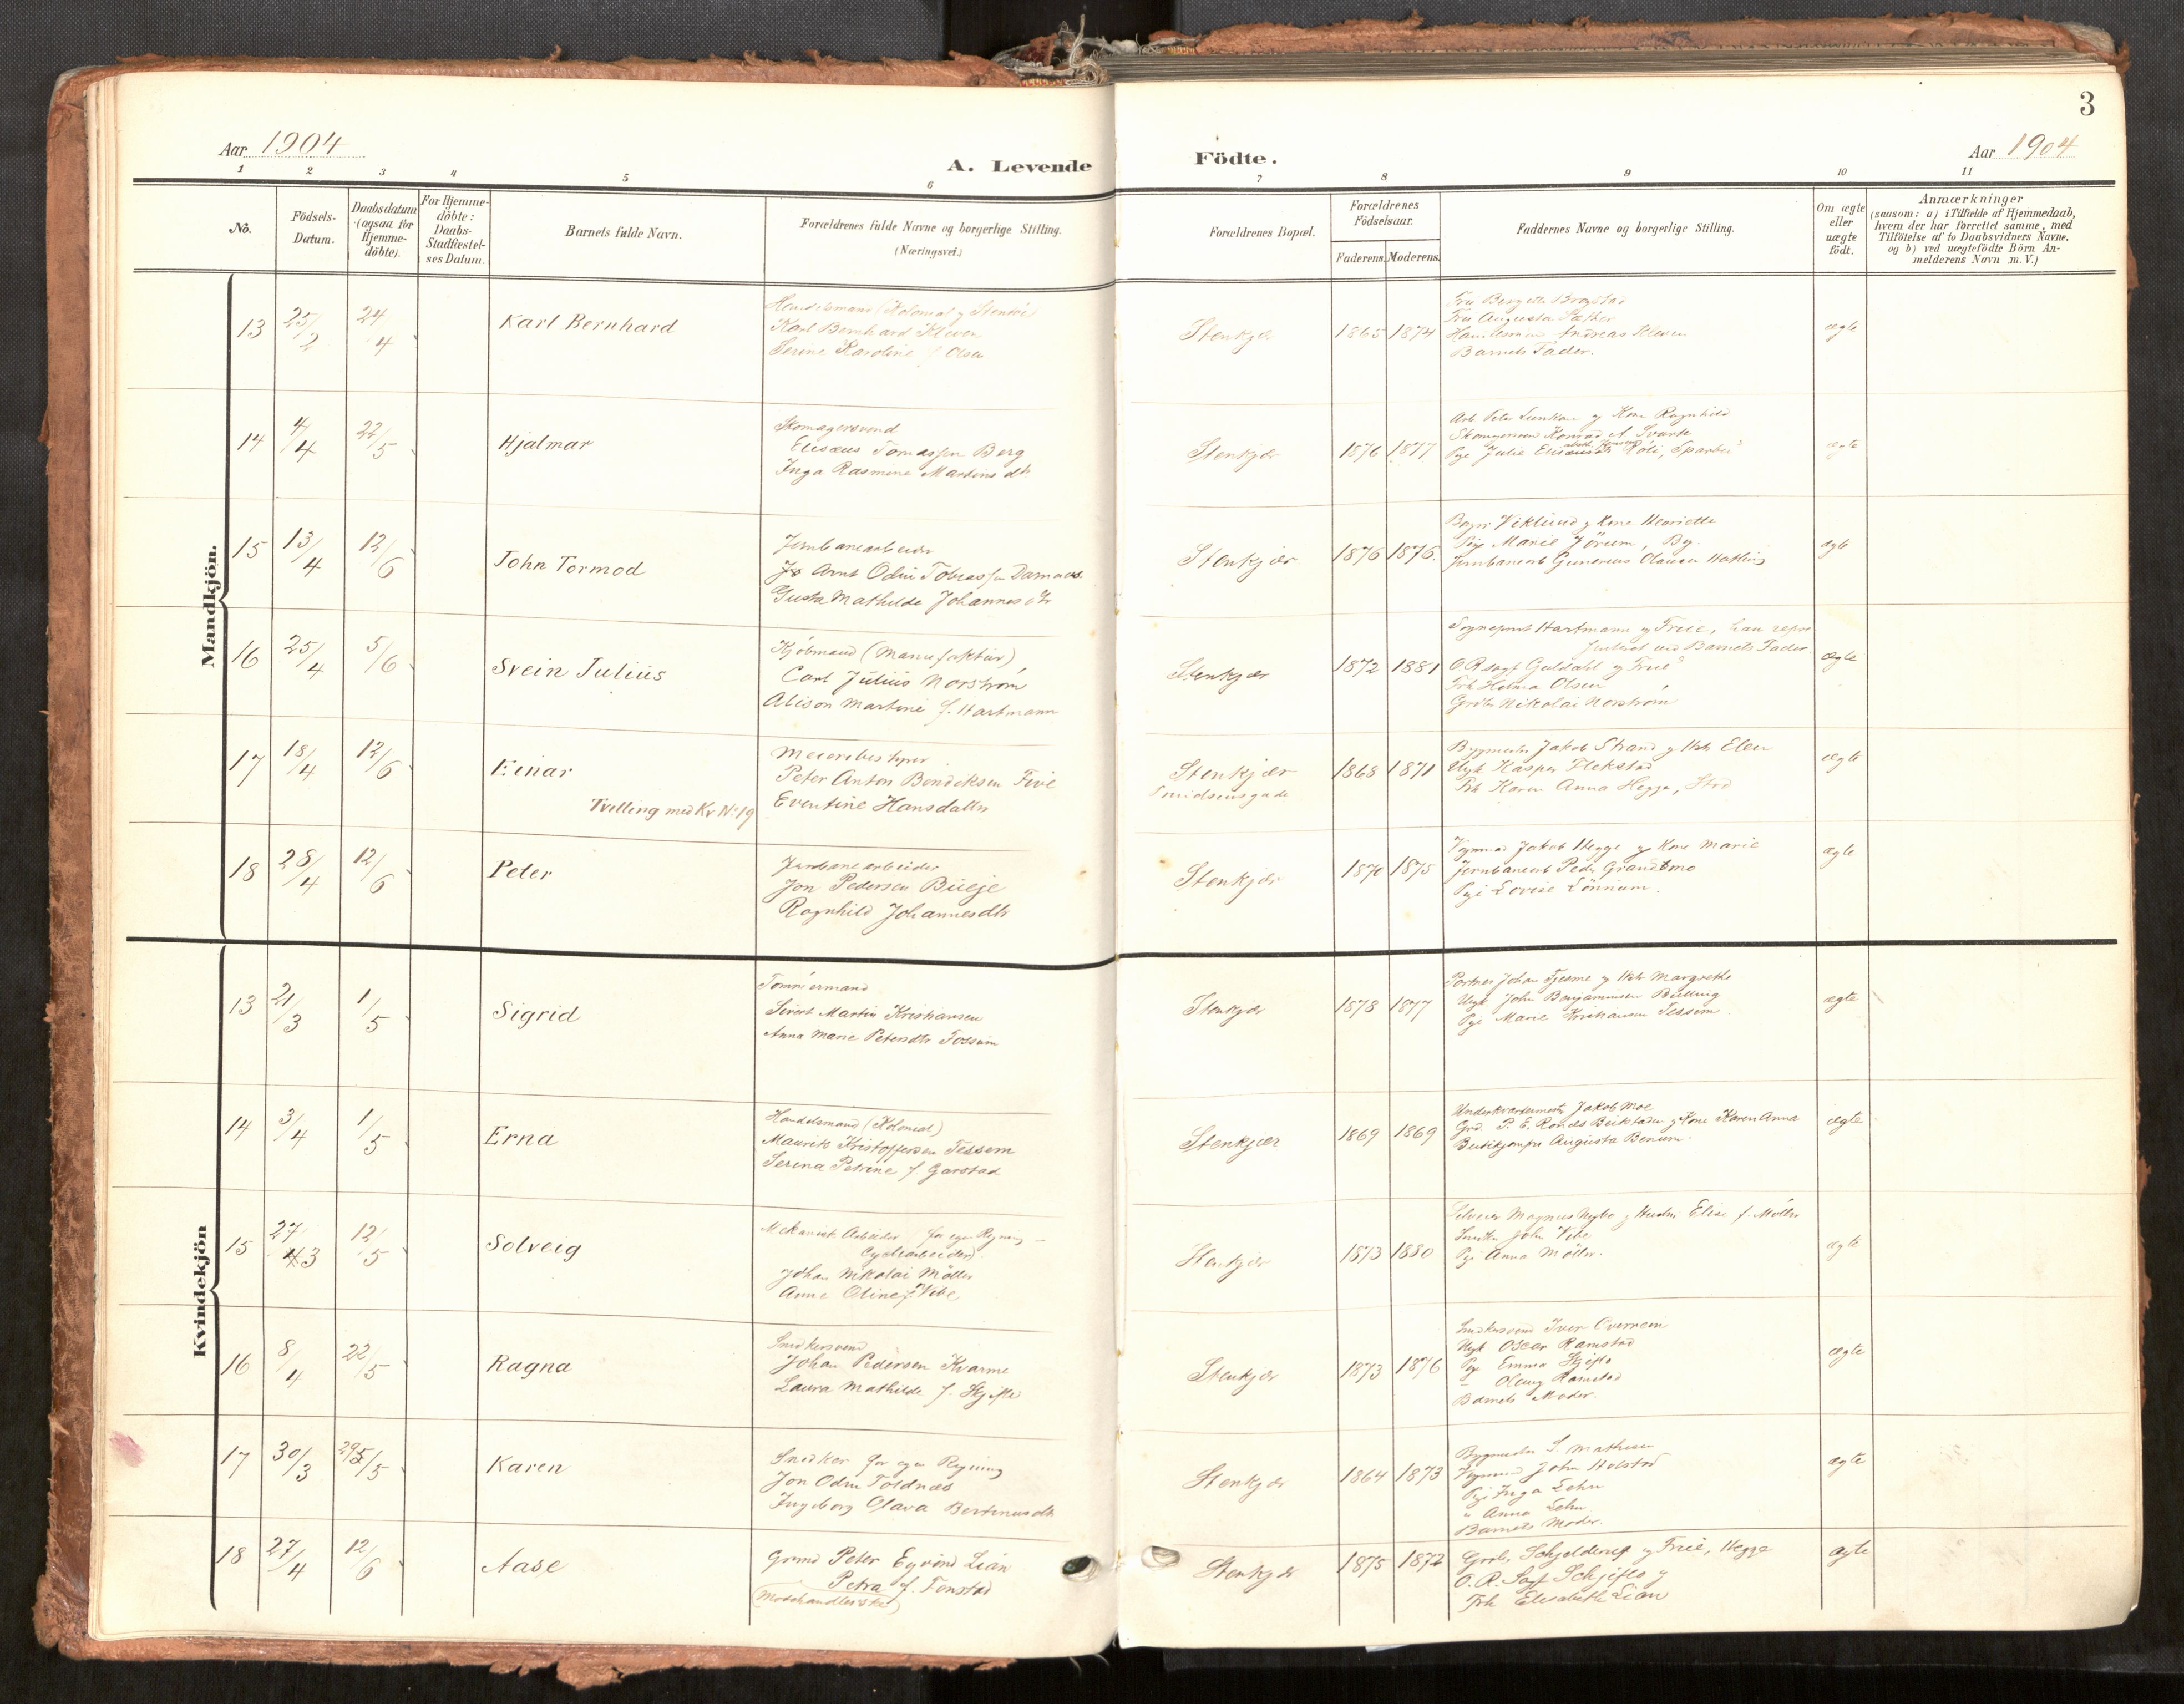 3
Aar 1904
A. Levende
Födte.
Aar 1904
1 2 3 4 5 6 7 8 9 10 11
No.
Födsels-
Datum.
Daabsdatum
(ogsaa for
Hjemme-
döbte).
For Hjemme-
döbte:
Daabs-
Stadfæstel-
ses Datum.
Barnets fulde Navn.
Forældrenes fulde Navne og borgerlige Stilling.
(Næringsvei.)
Forældrenes Bopæl.
Forældrenes
Födselsaar.
Faderens. Moderens.
Faddernes Navne og borgerlige Stilling.
Om ægte
eller
uægte
födt.
Anmærkninger
(saasom: a) i Tilfælde af Hjemmedaab,
hvem der har forrettet samme, med
Tilföielse af to Daabsvidners Navne,
og b) ved uægtefödte Börn An-
melderens Navn m. V.)
Mandkjön.
13 25/2 24/4 Karl Bernhard
Handelsmand (Kolonial og
Karl Bernhard Kleven
Serine Karoline f. Olsen
Stenkjær 1865 1874
Fru Bergette Brogstad
Fru Augusta Sæther
Handelsmand Andreas Kleven
Barnets Fader.
ægte
14 4/4 22/5 Hjalmar
Skomagersvend
Elisæus Tomassen Berg
Inga Rasmine Martinsdtr
Stenkjær 1876 1877
Arb. Peter og Kone Ragnhild
Konrad A. Svarte
Pige Julie
ægte
15 13/4 12/6 John Tormod
Jernbanearbeider
Arnt Odin Tobiassen Damaas
Gusta Mathilde Johannesdtr
Stenkjær 1876 1876.
Viklund og Kone
Pige Marie Jörum, By.
Jernbanearb Gunerius Olausen
ægte
16 25/4 5/6 Svein Julius
Kjöbmand (Manufaktur)
Carl Julius Norström
Alison Martine f. Hartmann
Stenkjær 1872 1881
Sogneprest Hartmann og Frue, han repræ
senteret ved Barnets Fader
O.R.sagf. Guldahl og Frue
Frk Helma Olsen
Grdbr Nikolai Norström
ægte
17 18/4 12/6 Einar
Tvilling med Kv No 19
Meieribestyrer
Peter Anton Bendiksen Five
Eventine Hansdatter
Stenkjær
Smidsensgade
1868 1871
Bygmester Jakob Strand og Hstr Elen
Ungk Kasper Flekstad
Frk Karen Anna Hegge, Stod
ægte
18 28/4 12/6 Peter
Jernbanearbeider
Jon Pedersen Bueje
Ragnhild Johannesdtr
Stenkjær 1870 1875
Vognmd Jakob Hegge og Kone Marie
Jernbanearb Peder Grandtmo
Pige Lovise Lönnum.
ægte
Kvindekjön
13 21/3 1/5 Sigrid
Tömmermand
Sivert Martin Kristiansen
Anna Marie Petersdtr Fossum
Stenkjær 1878 1877
Portner Johan Tjeme og Hstr Margrethe
Ungk John Benjaminsen
Pige Marie Kristiansen Tessem.
ægte
14 3/4 1/5 Erna
Handelsmand (Kolonial)
Maurits Kristoffersen Tessem
Serina Petrine f. Garstad
Stenkjær 1869 1869
Underkvartermester Jakob Moe
Grd. P. E. og Kone Karen Anna
Butikjomfru Augusta Benum.
ægte
15 27/3 12/5 Solveig
Mekanisk Arbeider for egen Regning –
Cyclearbeider.
Johan Nikolai Möller
Anne Oline f. Vibe
Stenkjær 1873 1880
Magnus og Hustru Elise f. Möller
John Vibe
Pige Anna Möller.
ægte
16 8/4 22/5 Ragna
Snedkersvend
Johan Pedersen Kvarme
Laura Mathilde f. Skjefte
Stenkjær 1873 1876
Snedkersvend Iver Overrem
Ungk Oscar Ramstad
Pige Emma Skjefte
" Olaug Ramstad
Barnets Moder.
ægte
17 30/3 29/5 Karen
Snedker for egen Regning
Jon Odin Toldnæs
Ingeborg Olava Bertinusdtr
Stenkjær 1864 1873
Bygmester S. Mathisen
Vognmd John Holstad
Pige Inga Lehn
" Anna Lehn
Barnets Moder.
ægte
18 27/4 12/6 Aase
Grmd Peter Eyvind Lian
Petra f. Tonstad
(Motehandlerske)
Stenkjær 1875 1872
Grdbr. Schjelderup og Frue, Hegge
O. R. Sagf Schjeflo og
Frk Elesabeth Lian
ægte